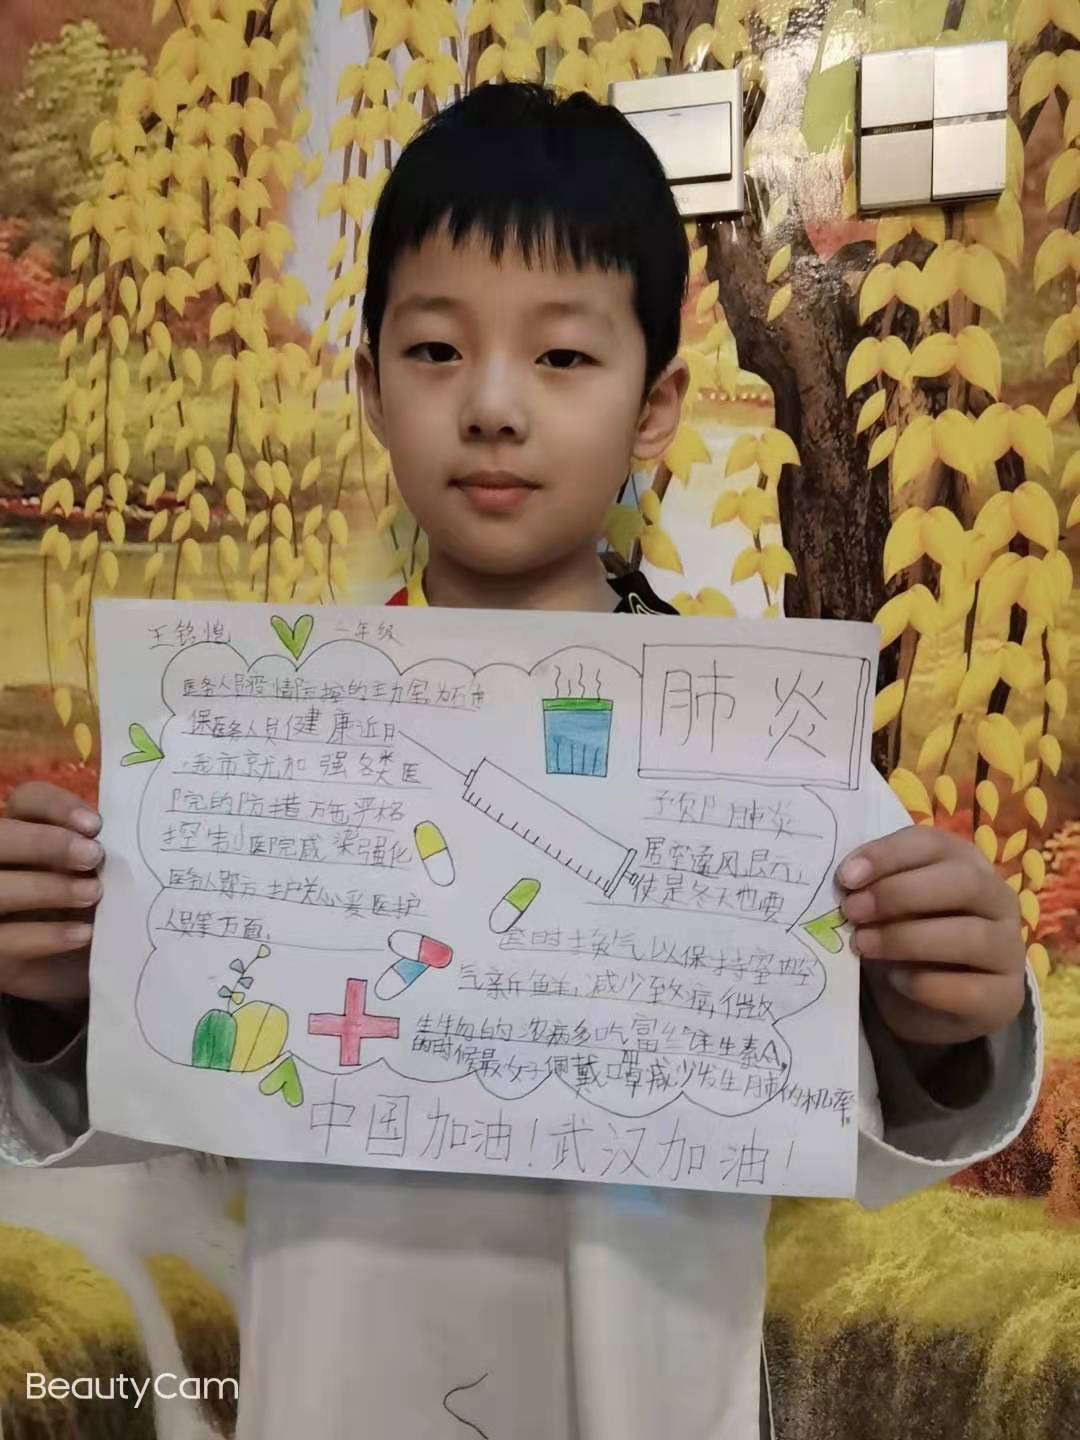 王铭恺 二年级
医务人员疫情防控的主力军,为
保医务人员健康近日
我市就加强各类医
院的防措施严格
控制医院感染强化
医务人员防护关心爱医护
人员等方面。
肺炎
予负肺炎
居室通风
使是冬天也要
定时换气以保持室内空
气新鲜,减少致病微
生物的浓
多吃富
维生素A,
的时候最好佩戴口罩减少发生肺的机率
中国加油!武汉加油!
BeautyCam